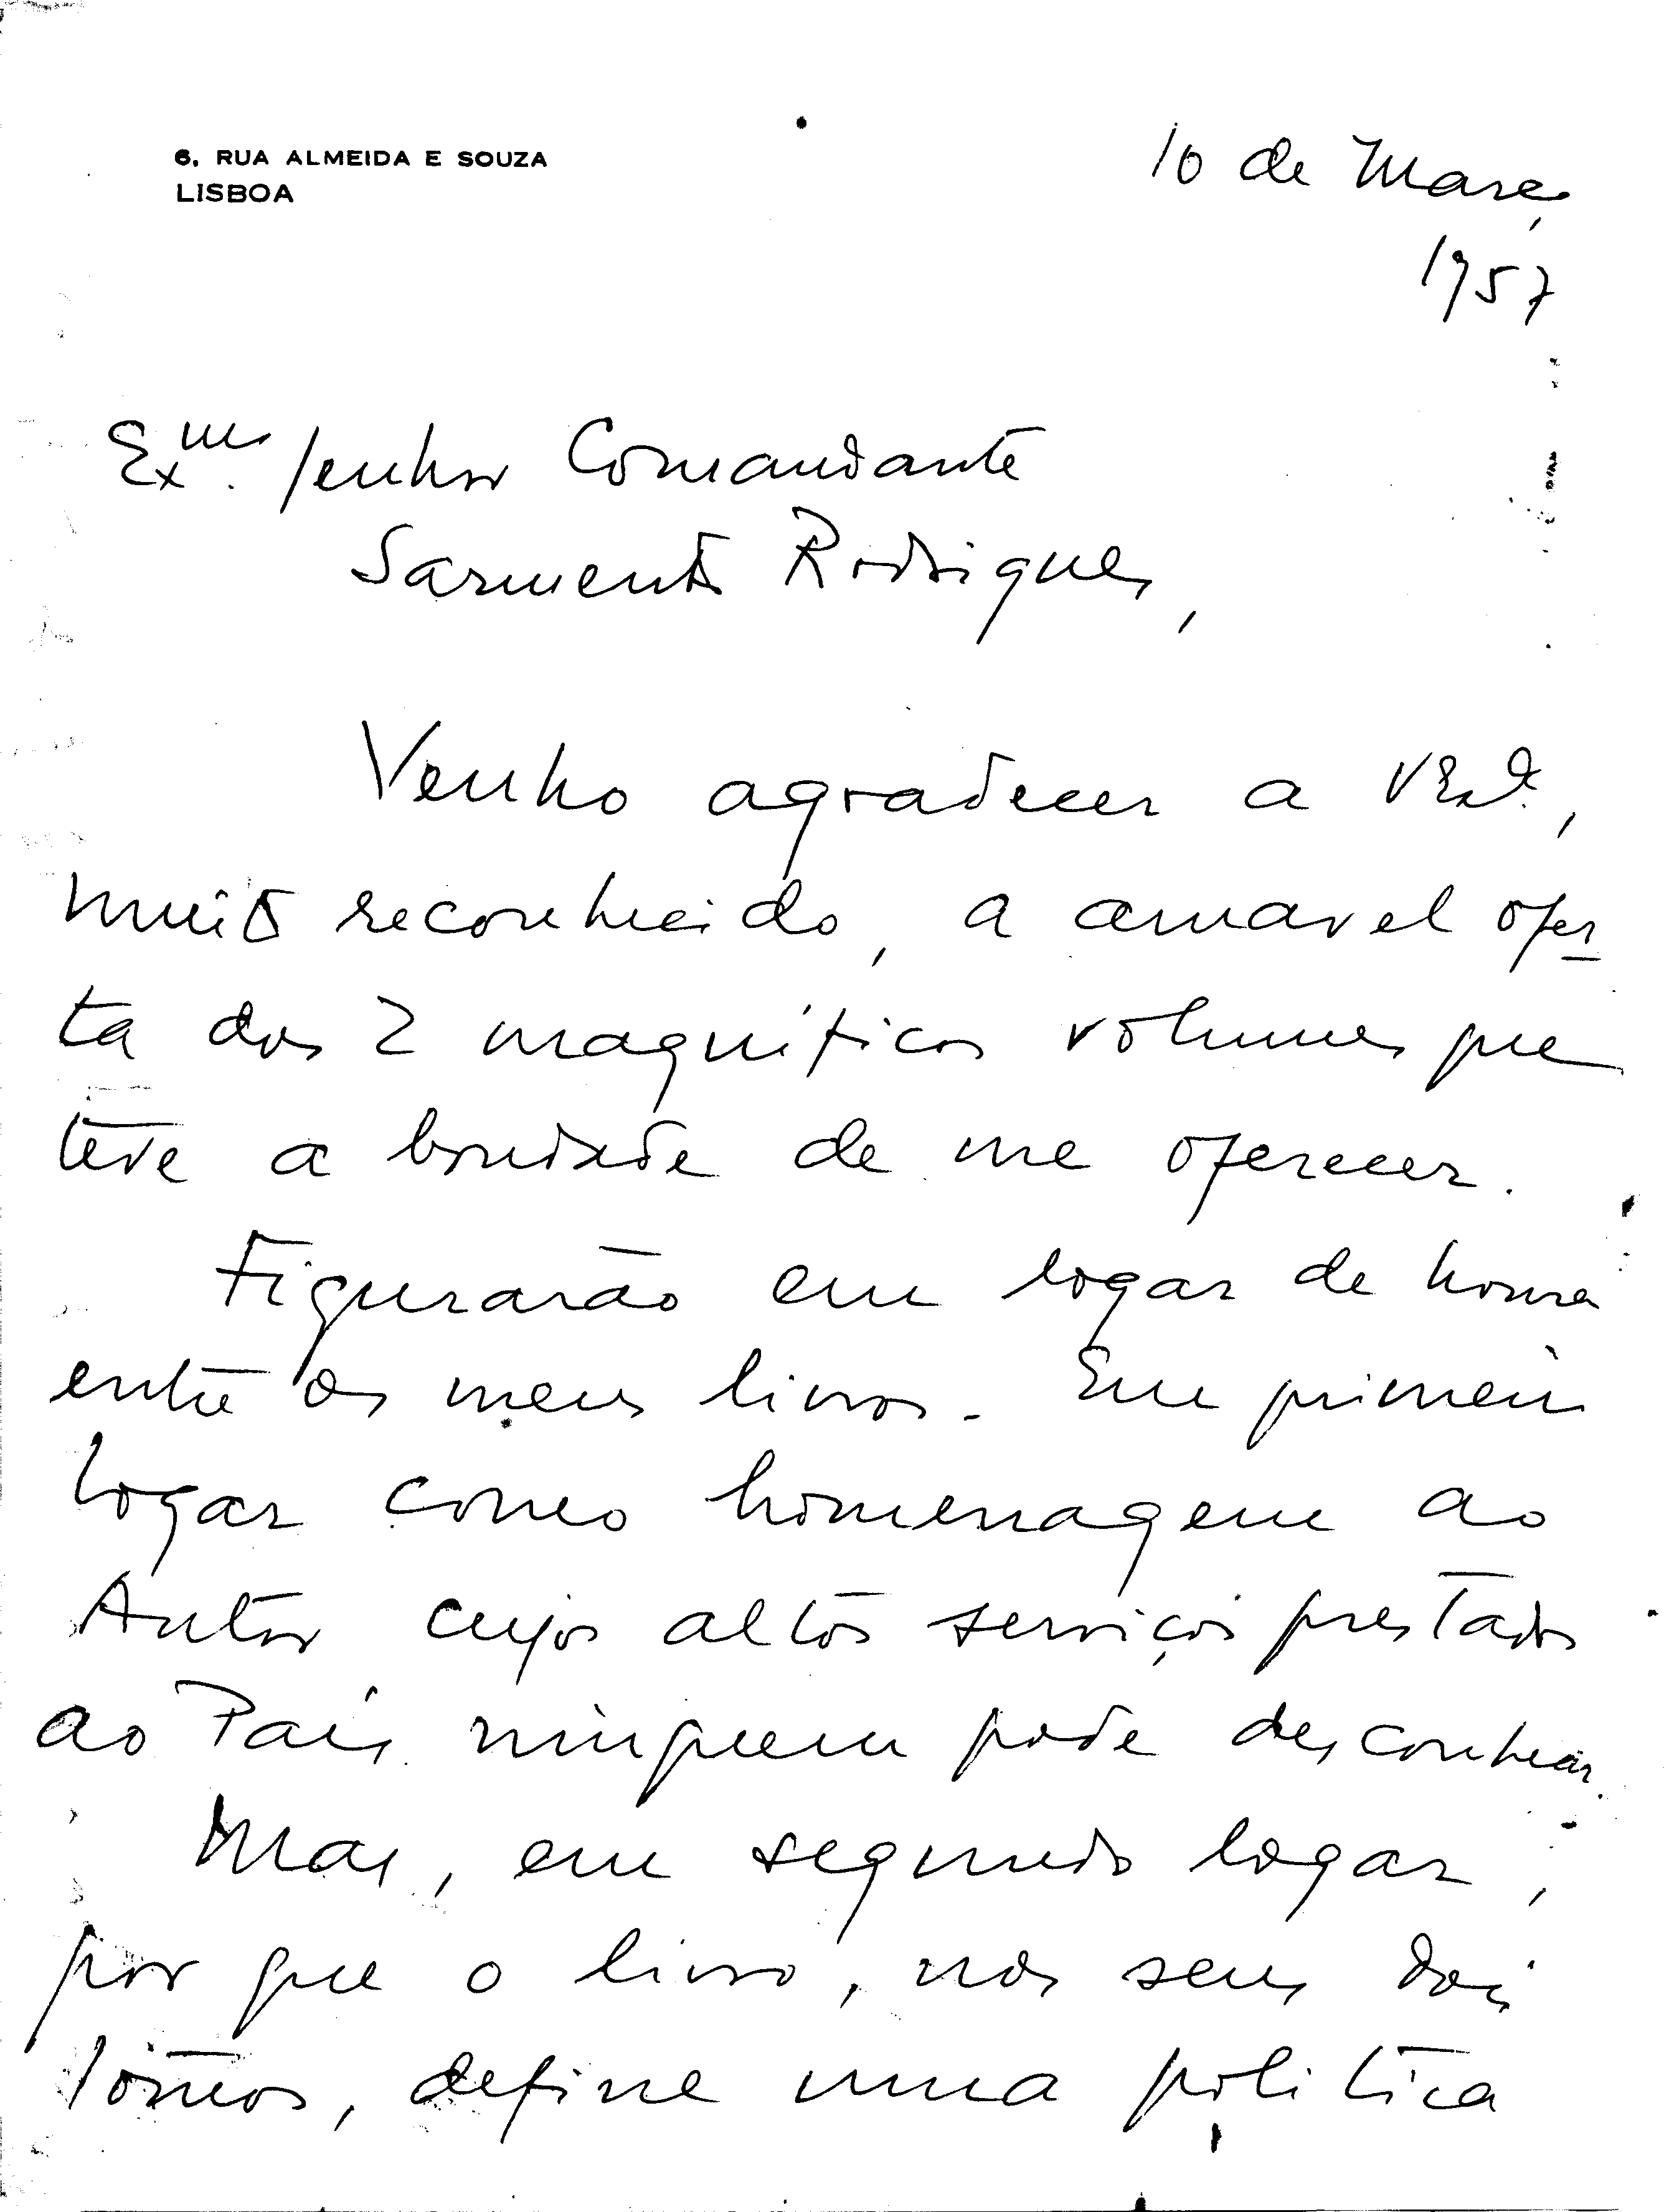 6, RUA ALMEIDA E SOUZA
LISBOA
10 de Março
1957
Exmo. Senhor Comandante
Sarmento Rodrigues,
Venho agradecer a VExª,
muito reconhecido, a amavel ofer-
ta dos 2 magníficos volumes que
teve a bondade de me oferecer.
Figurarão em logar de honra
entre os meus livros. Em primeiro
logar como homenagem ao
Autor cujos altos serviços prestados
ao País ninguem pode desconhecer.
Mas, em segundo logar,
por que o livro, nos seus dois
tomos, define uma politica